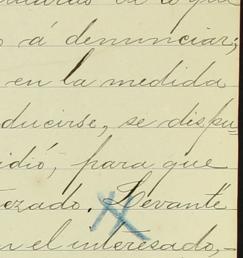 á denunciar;
en la medida
ducirse, se dispu-
idió, para que
ezado. Levanté
n el interesado,-